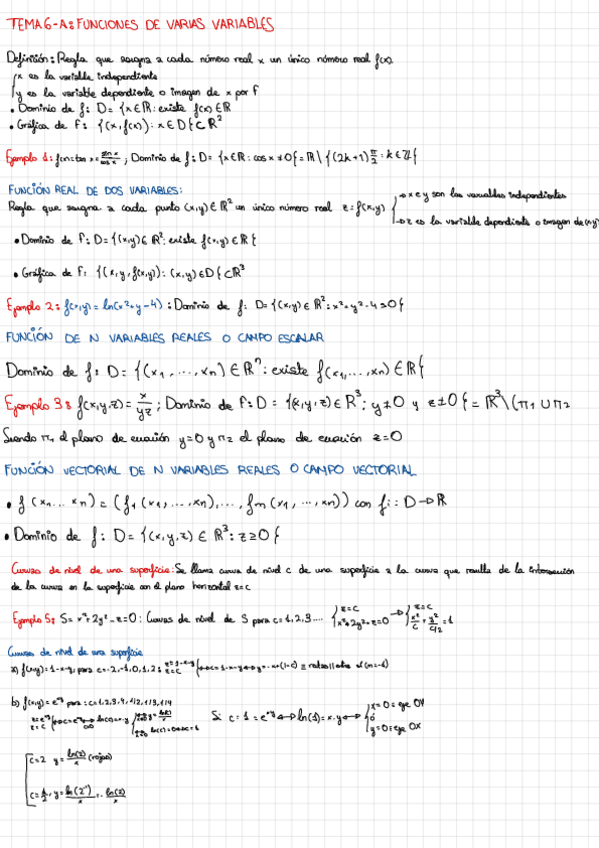 TEMA 6-A: FUNCIONES DE VARIAS VARIABLES
Definición: Regla que asigna a cada número real x un único número real f(x).
{x es la variable independiente
y es la variable dependiente o imagen de x por f
• Dominio de f: D= {x∈ℝ: existe f(x)∈ℝ
• Gráfica de F: {(x, f(x)): x∈D} ⊂ ℝ²
Ejemplo 1: f(x)=tan x= sen x / cos x ; Dominio de f: D= {x∈ℝ: cos x ≠0} = ℝ \ {(2k+1) π/2 : k∈ℤ}
FUNCIÓN REAL DE DOS VARIABLES:
Regla que asigna a cada punto (x,y)∈ℝ² un único número real z=f(x,y) { → x e y son las variables independientes
→ z es la variable dependiente o imagen de (x,y)
• Dominio de F: D= {(x,y)∈ℝ²: existe f(x,y)∈ℝ}
• Gráfica de F: {(x, y, f(x,y)): (x,y)∈D} ⊂ ℝ³
Ejemplo 2: f(x,y) = ln(x²+y-4) : Dominio de f: D= {(x,y)∈ℝ²: x²+y²-4>0}
FUNCIÓN DE N VARIABLES REALES O CAMPO ESCALAR
Dominio de f: D= {(x1, ..., xn)∈ℝⁿ: existe f(x1, ..., xn)∈ℝ}
Ejemplo 3: f(x,y,z)= x/yz ; Dominio de F: D= {(x,y,z)∈ℝ³: y≠0 y z≠0} = ℝ³\(π1 ∪ π2
Siendo π1 el plano de ecuación y=0 y π2 el plano de ecuación z=0
FUNCIÓN VECTORIAL DE N VARIABLES REALES O CAMPO VECTORIAL
• f (x1 ... xn) = (f1 (x1, ..., xn), ..., fm (x1, ..., xn)) con fi: D→ℝ
• Dominio de f: D= {(x,y,z) ∈ ℝ³: z≥0}
Curvas de nivel de una superficie: Se llama curva de nivel c de una superficie a la curva que resulta de la intersección
de la curva en la superficie con el plano horizontal z=c
Ejemplo 5: S= x²+2y²-z=0: Curvas de nivel de S para c=1,2,3.... {z=c x²+2y²-z=0 → {z=c x²/c + y²/c/2 = 1
Curvas de nivel de una superficie
a) f(x,y)=1-x-y, para c=-2,-1,0,1,2:
b) f(x,y)=e^xy para: c=1,2,3,4, 1/2, 1/3, 1/4
Si c=1=e^xy ↔ ln(1)=x·y ↔ {x=0 = eje OY
ó
y=0 = eje OX
c=2 y= ln(2)/x (rojas)
c=1/2, y= ln(2⁻¹)/x = - ln(2)/x